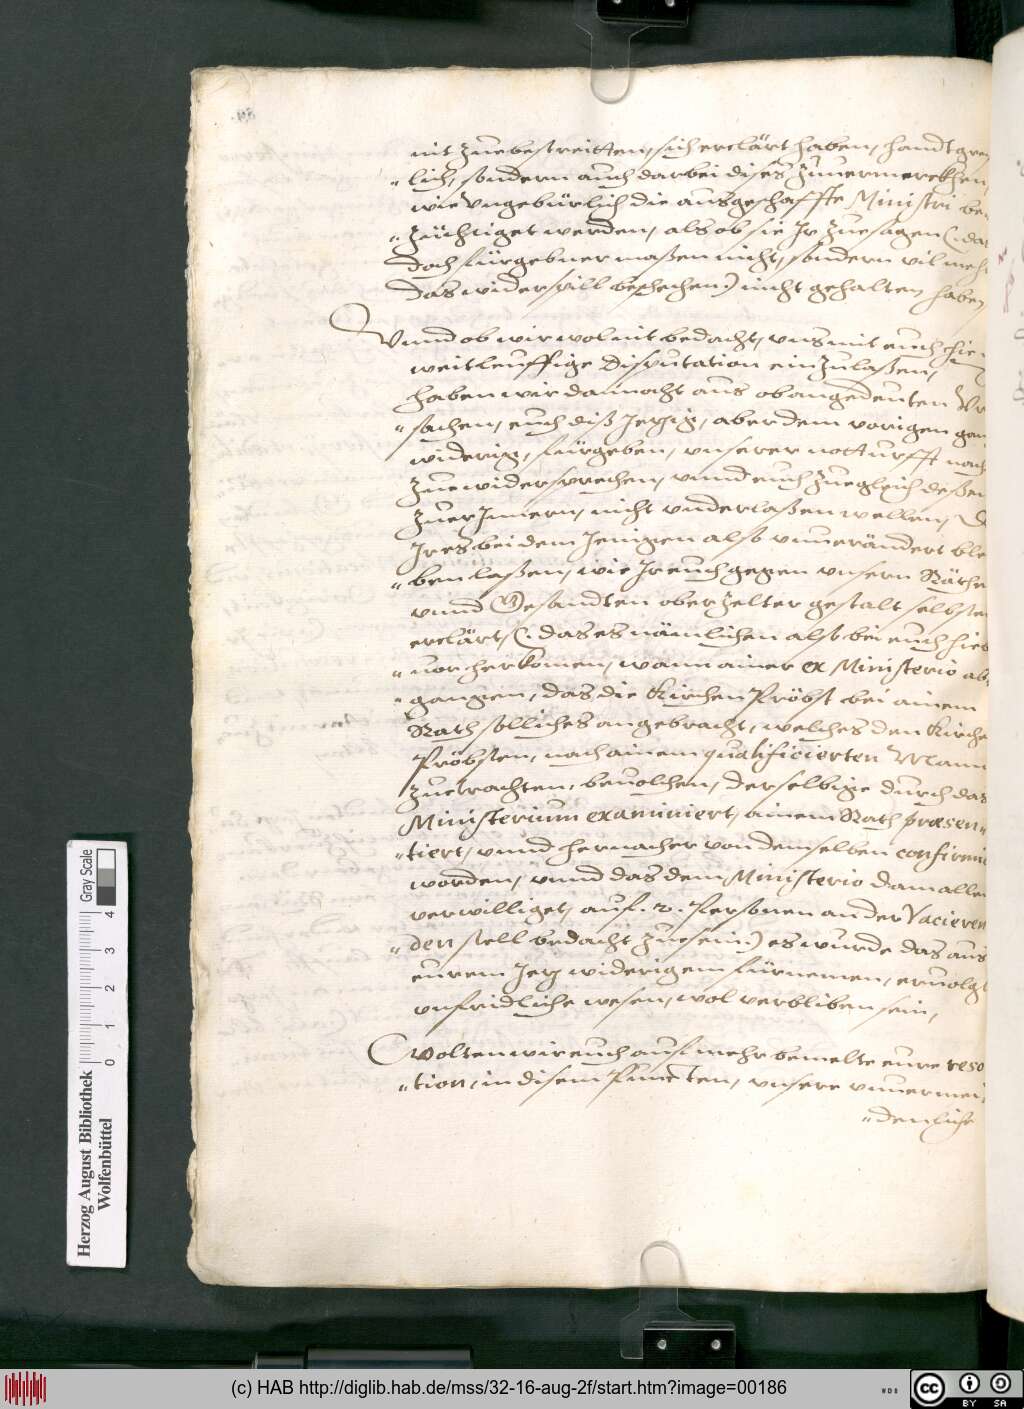 nit zuebestreitten, sich erclärt haben, handtgreif
"lich, sondern auch darbei dises zuuermerckhen,
wie vngebürlich die ausgeschaffte Ministri be
"züchtiget werden, als ob sie Ir zuesagen (: das
doch fürgebner maßen nicht, sondern vil mehr
das widerspill beschechen :) nicht gehalten haben
Vnnd ob wir wol nit bedacht, vns mit euch hie
weitleuffige Disputation einzulaßen,
haben wir dannocht aus obangedeuten Vr
"sachen, euch diß Jezig, aber dem vorigen ganz
widerig, fürgeben, vnserer notturfft nach
zue widersprechen, vnnd euch zuegleich deßen
zuerInnern, nicht vnderlaßen wellen, Da
Ir es bei dem Jenigen also vnuerändert blei
"ben laßen, wie Ir euch gegen vnsern Räthen
vnnd Gesandten oberzelter gestalt selbsten
erclärt, (: das es nämlichen also bei euch hie
"uor herkomen, wann ainer ex Ministerio ab
"gangen, das die Kirchen Pröbst bei ainem
Rath solliches angebracht, welches den Kirchen
Pröbsten, nach ainem qualificierten Mann
zuetrachten, beuolchen, derselbige durch das
Ministerium examiniert, ainem Rath præsen"
"tiert, vnnd hernacher von demselben confirmie
worden, vnnd das dem Ministerio damallen
verwilliget, auf .2. Personen an der Vacieren
"den stell bedacht zuesein :) es wurde das aus
eurem Jezt widerigem fürnemen, eruolgt
vnfridliche wesen, wol verbliben sein,
Wolten wir euch auf mehr bemelte eure reso
"tion, in disem Puncten, vnsere vnuermei
"denliche
Herzog August Bibliothek
Wolfenbüttel
0 1 2 3 4
Gray Scale
(c) HAB http://diglib.hab.de/mss/32-16-aug-2f/start.htm?image=00186
WDB
cc BY SA